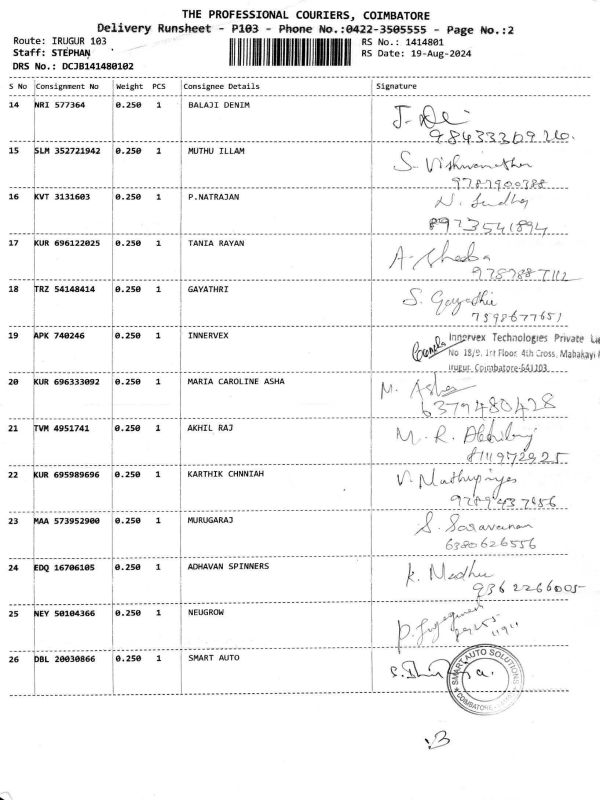 THE PROFESSIONAL COURIERS, COIMBATORE
Delivery Runsheet - P103 - Phone No.:0422-3505555 - Page No.:2
Route: IRUGUR 103 RS No.: 1414801
Staff: STEPHAN RS Date: 19-Aug-2024
DRS No.: DCJB141480102
S No Consignment No Weight PCS Consignee Details Signature
14 NRI 577364 0.250 1 BALAJI DENIM
15 SLM 352721942 0.250 1 MUTHU ILLAM S.
9787900388
16 KVT 3131603 0.250 1 P.NATRAJAN N.
8973541894
17 KUR 696122025 0.250 1 TANIA RAYAN A. Sheeba
18 TRZ 54148414 0.250 1 GAYATHRI S. Gayathri
7598677651
19 APK 740246 0.250 1 INNERVEX Innervex Technologies Private
No 18/9, 1st Floor, 4th Cross, Mahakavi
Irugur, Coimbatore-641103
20 KUR 696333092 0.250 1 MARIA CAROLINE ASHA M. Asha
6379480428
21 TVM 4951741 0.250 1 AKHIL RAJ M. R. Akhilraj
22 KUR 695989696 0.250 1 KARTHIK CHNNIAH
9789437456
23 MAA 573952900 0.250 1 MURUGARAJ S. Saravanan
6380626556
24 EDQ 16706105 0.250 1 ADHAVAN SPINNERS K. Medhu
9362266005
25 NEY 50104366 0.250 1 NEUGROW P.
26 DBL 20030866 0.250 1 SMART AUTO S.
SMART AUTO SOLUTIONS
COIMBATORE